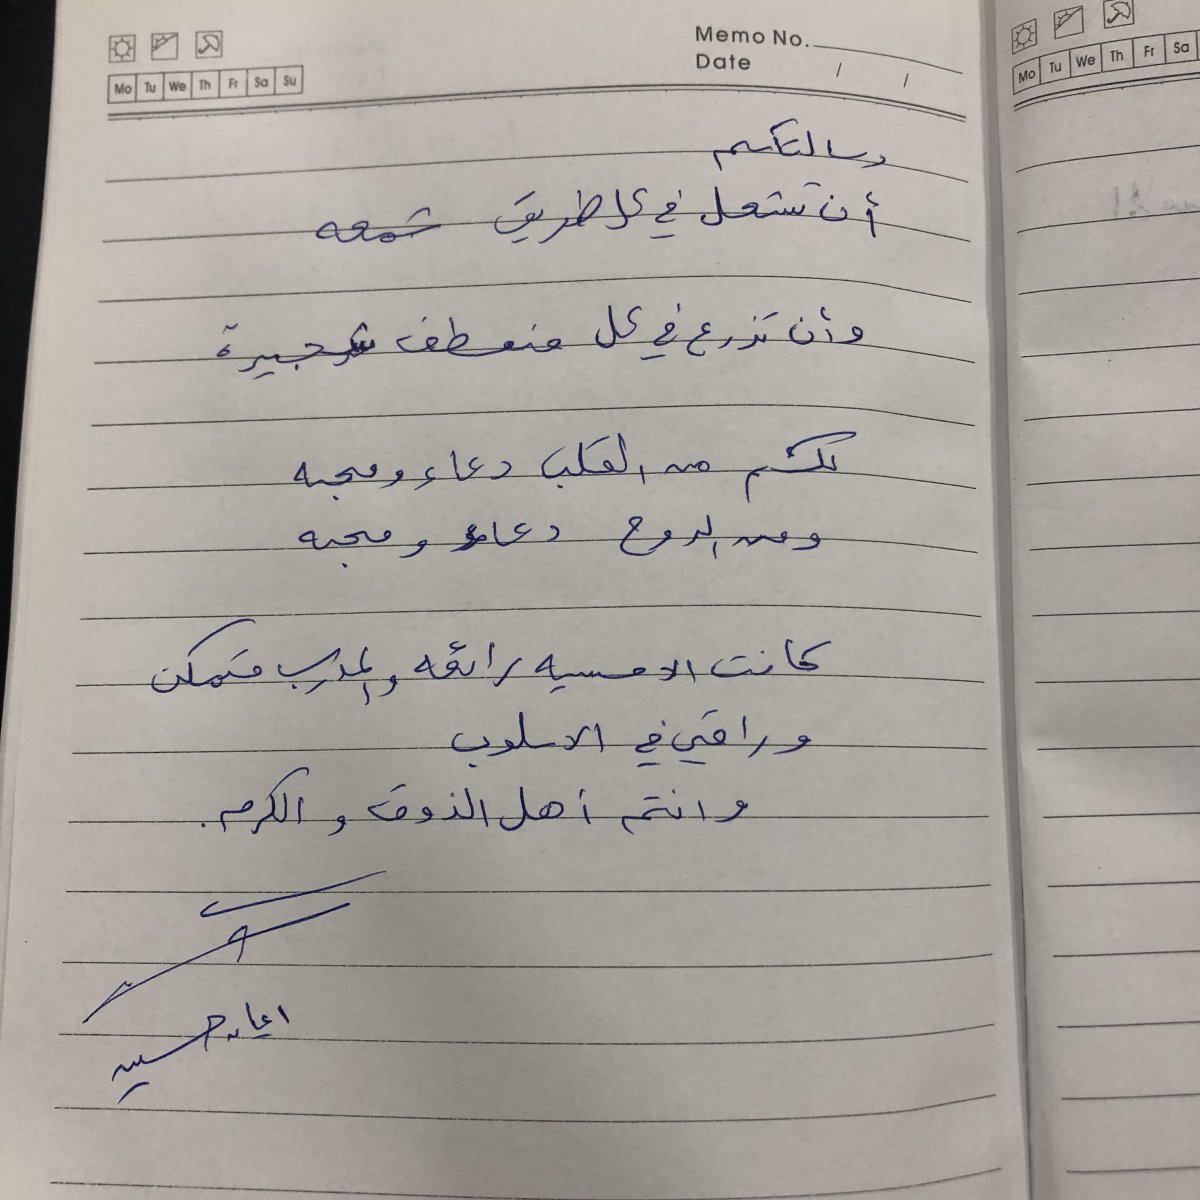 Memo No.
Date / /
Mo Tu We Th Fr Sa Su
Mo Tu We Th Fr Sa
رسالتكم
أن تشعل في كل طريق شمعه
وأن تزرع في كل منعطف شجيرة
لكم من القلب دعاء ومحبه
ومن الروح دعاء ومحبه
كانت الامسيه رائعه والمدرب متمكن
وراقي في الاسلوب
وانتم أهل الذوق والكرم.
ايمان حسين